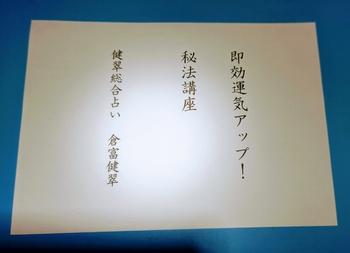 即効運気アップ!
秘法講座
健翠総合占い 倉富健翠